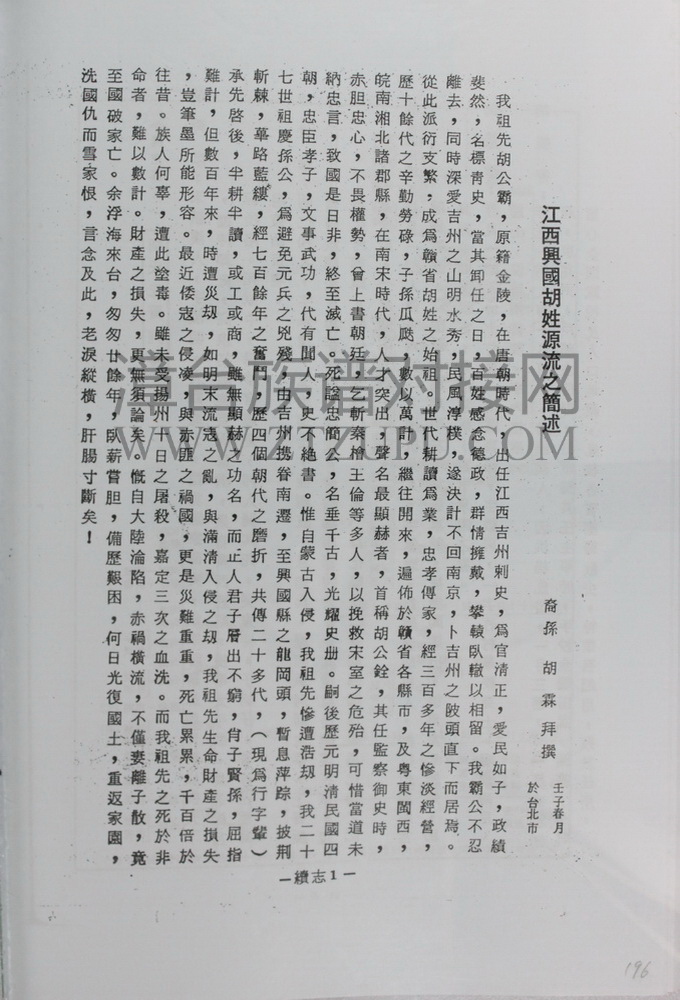 江西興國胡姓源流之簡述
裔孫 胡霖 拜撰
壬子春月
於台北市
我祖先胡公霸，原籍金陵，在唐朝時代，出任江西吉州刺史，爲官清正，愛民如子，政績
斐然，名標青史，當其卸任之日，百姓感念德政，群情擁戴，攀轅臥轍以相留。我霸公不忍
離去，同時深愛吉州之山明水秀，民風淳樸，遂決計不回南京，卜吉州之陂頭直下而居焉。
從此派衍支繁，成爲贛省胡姓之始祖。世代耕讀爲業，忠孝傳家，經三百多年之慘淡經營，
歷十餘代之辛勤勞碌，子孫瓜瓞，數以萬計，繼往開來，遍佈於贛省各縣市，及粵東閩西，
皖南湘北諸郡縣，在南宋時代，人才突出，聲名最顯赫者，首稱胡公銓，其任監察御史時，
赤胆忠心，不畏權勢，曾上書朝廷，乞斬秦檜王倫等多人，以挽救宋室之危殆，可惜當道未
納忠言，致國是日非，終至滅亡。死謚忠簡公，名垂千古，光耀史册。嗣後歷元明清民國四
朝，忠臣孝子，文事武功，代有聞人，史不絶書。惟自蒙古入侵，我祖先慘遭浩刼，我二十
七世祖慶孫公，爲避免元兵之兇殘，由吉州携眷南遷，至興國縣之龍岡頭，暫息萍踪，披荆
斬棘，蓽路藍縷，經七百餘年之奮鬥，歷四個朝代之磨折，共傳二十多代，（現爲行字輩）
承先啓後，半耕半讀，或工或商，雖無顯赫之功名，而正人君子層出不窮，肖子賢孫，屈指
難計，但數百年來，時遭災刼，如明末流寇之亂，與滿清入侵之刼，我祖先生命財產之損失
，豈筆墨所能形容。最近倭寇之侵凌，與赤匪之禍國，更是災難重重，死亡累累，千百倍於
往昔。族人何辜，遭此塗毒。雖未受揚州十日之屠殺，嘉定三次之血洗。而我祖先之死於非
命者，難以數計。財產之損失，更無須論矣。慨自大陸淪陷，赤禍橫流，不僅妻離子散，竟
至國破家亡。余浮海來台，匆匆廿餘年，臥薪嘗胆，備歷艱困，何日光復國土，重返家園，
洗國仇而雪家恨，言念及此，老淚縱橫，肝腸寸斷矣！
—續志1—
196
漳台族谱对接网
WWW.ZTZUPU.COM